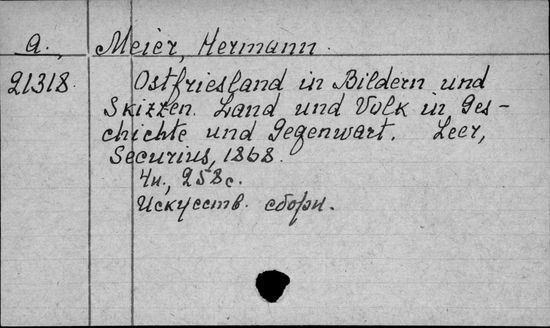 a., Meier, Hermann.
21318. Ostfriesland in Bildern und
Skizzen. Land und Volk in Ges-
chichte und Gegenwart. Leer,
Securius, 1868.
4н., 258с.
Искусств. сборн.